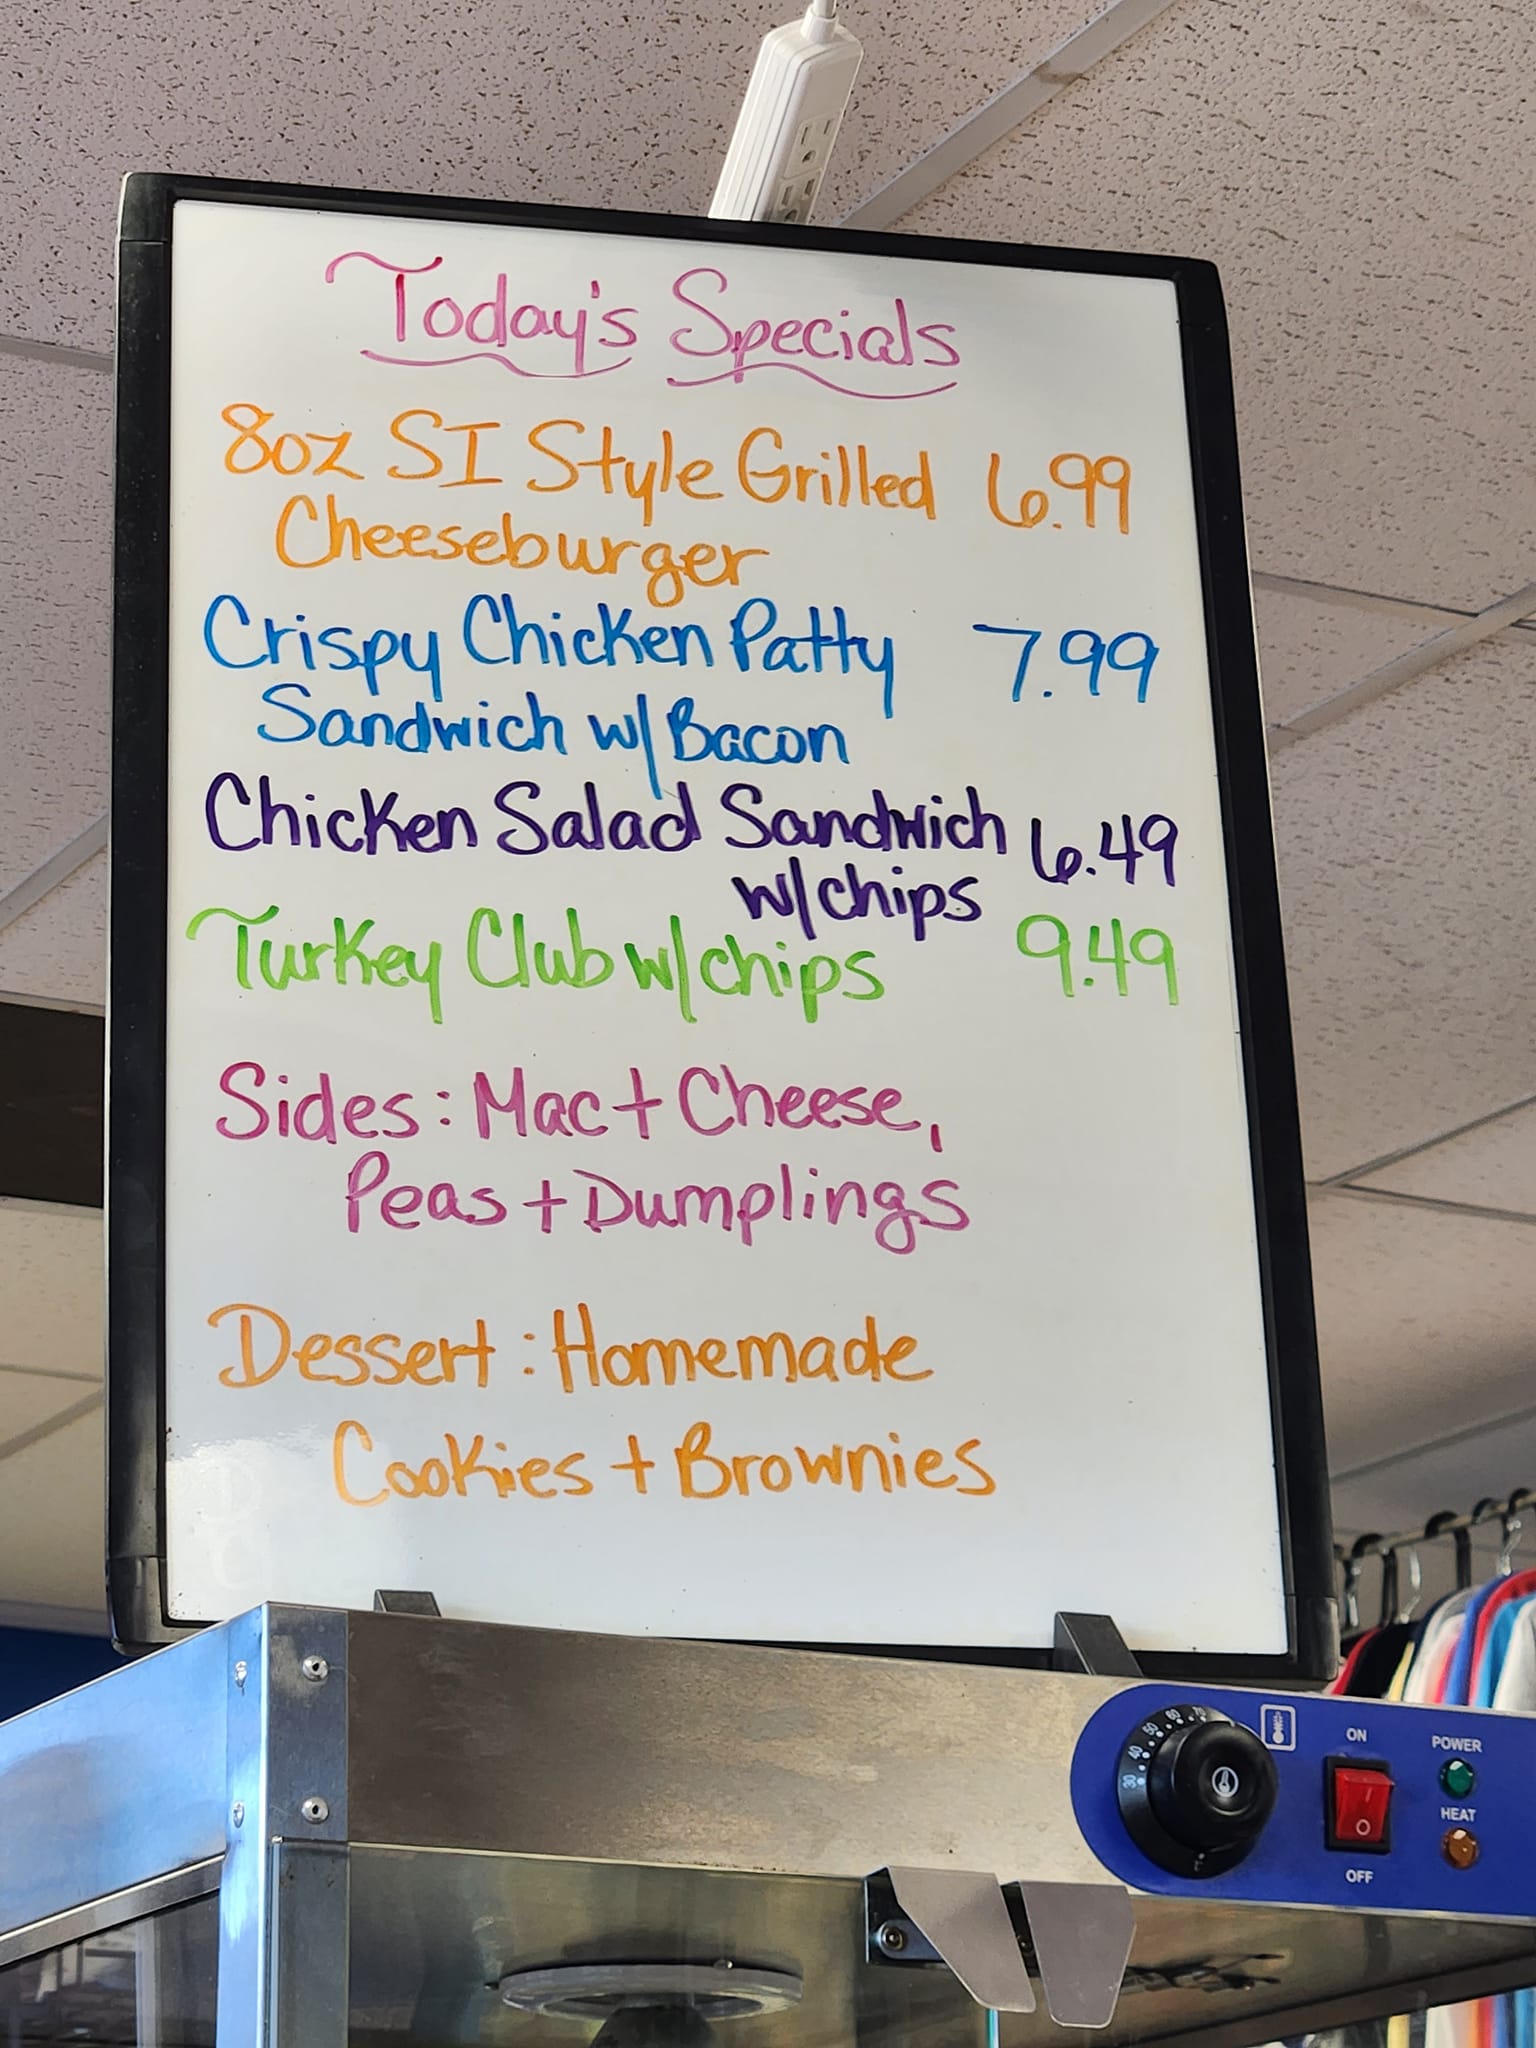 Today's Specials
8oz SI Style Grilled 6.99
Cheeseburger
Crispy Chicken Patty 7.99
Sandwich w/Bacon
Chicken Salad Sandwich 6.49
w/chips
Turkey Club w/chips 9.49
Sides: Mac + Cheese,
Peas + Dumplings
Dessert: Homemade
Cookies + Brownies
ON
POWER
HEAT
OFF
30 40 50 60